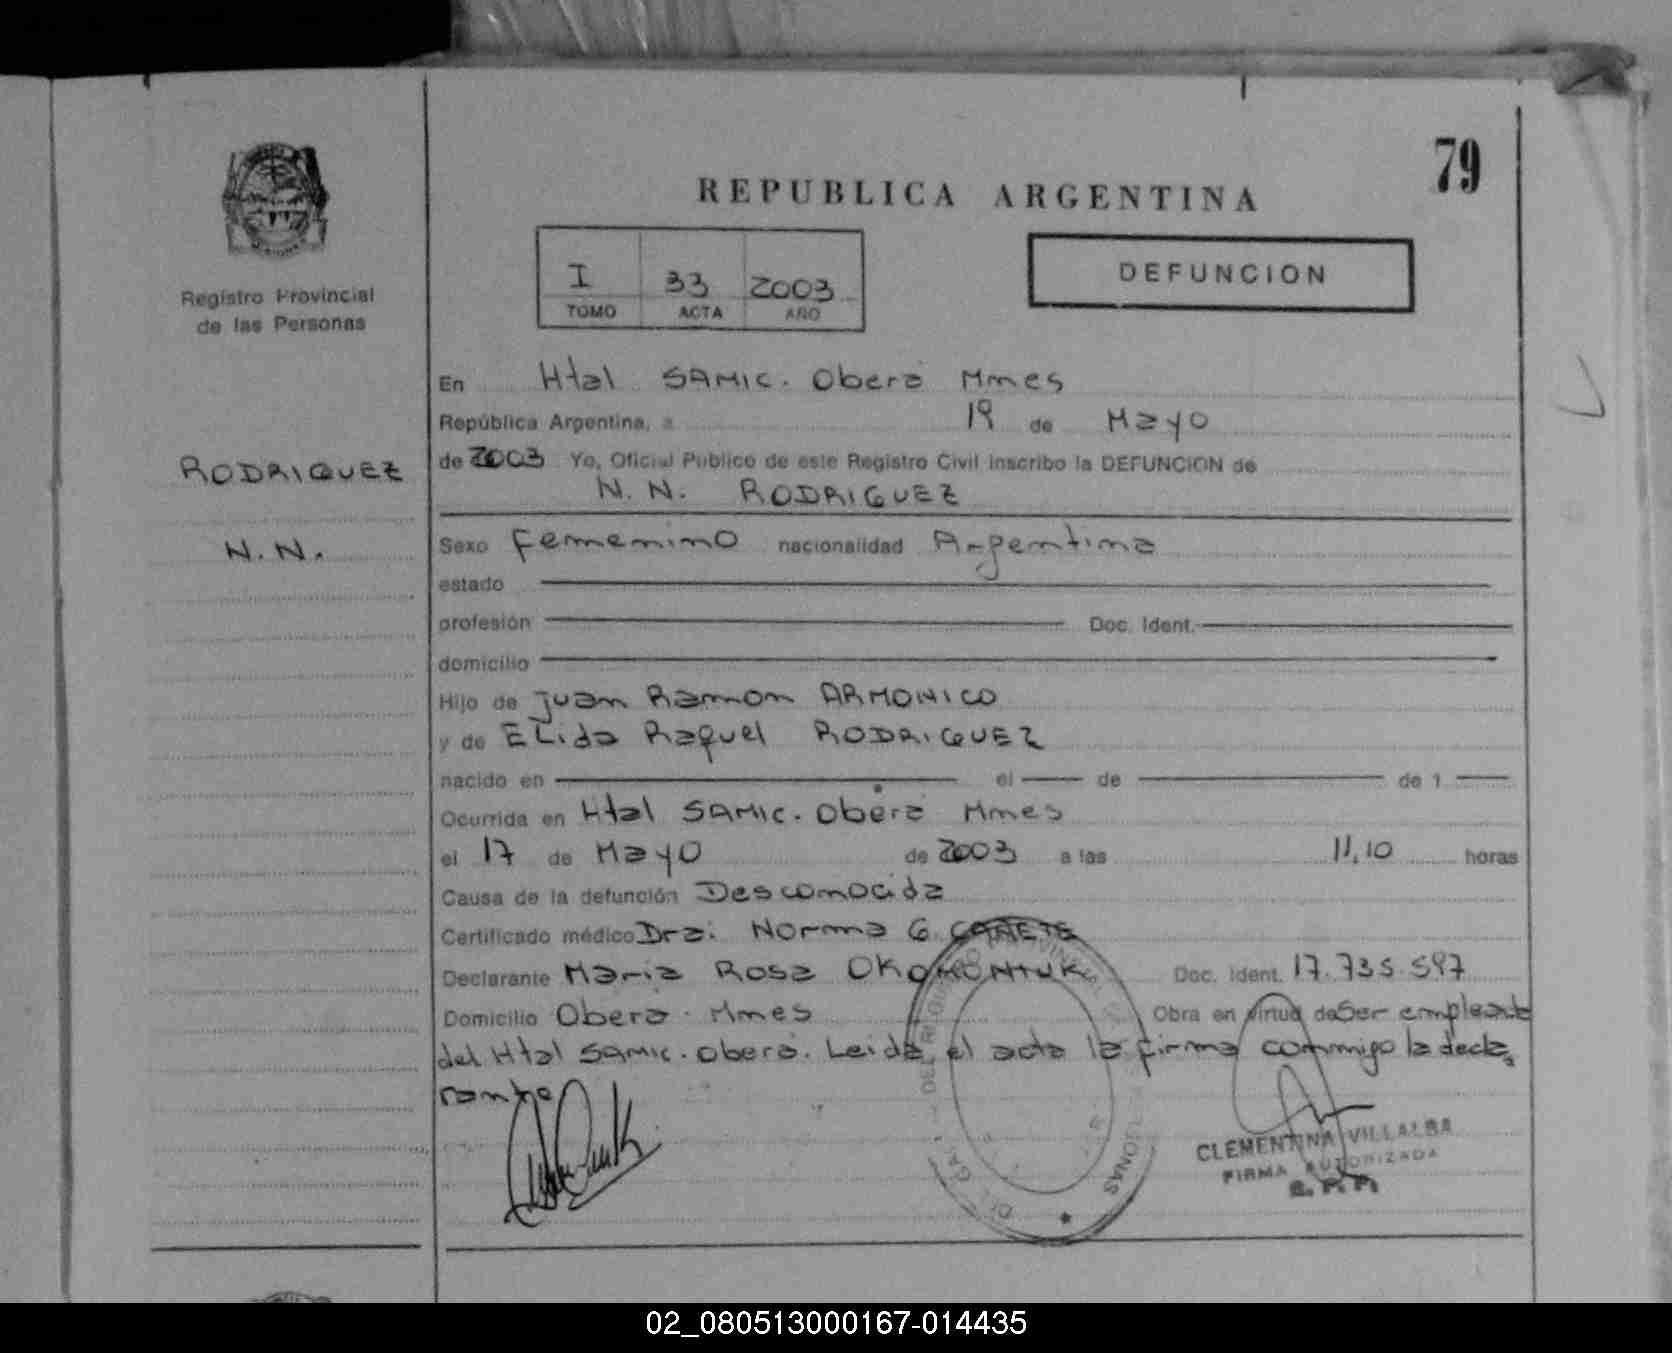 79
REPUBLICA ARGENTINA
I 33 2003
TOMO ACTA AÑO
DEFUNCION
Registro Provincial
de las Personas
RODRIGUEZ
N.N.
En Htal SAMIC. Oberá Mnes
República Argentina, a 19 de Mayo
de 2003 Yo, Oficial Público de este Registro Civil inscribo la DEFUNCION de
N.N. RODRIGUEZ
Sexo femenino nacionalidad Argentina
estado
profesión Doc. Ident.
domicilio
Hijo de Juan Ramon ARMONICO
y de ELida Raquel RODRIGUEZ
nacido en el de de 1
Ocurrida en Htal SAMIC. Oberá Mnes
el 17 de Mayo de 2003 a las 11,10 horas
Causa de la defunción Desconocida
Certificado médico Dra: Norma G. CAÑETE
Declarante Maria Rosa Doc. Ident. 17.735.597
Domicilio Oberá - Mnes Obra en virtud de Ser empleada
del Htal SAMIC. Oberá. Leida el acta la firma conmigo la decla
rante
CLEMENTINA VILLALBA
FIRMA AUTORIZADA
02_080513000167-014435